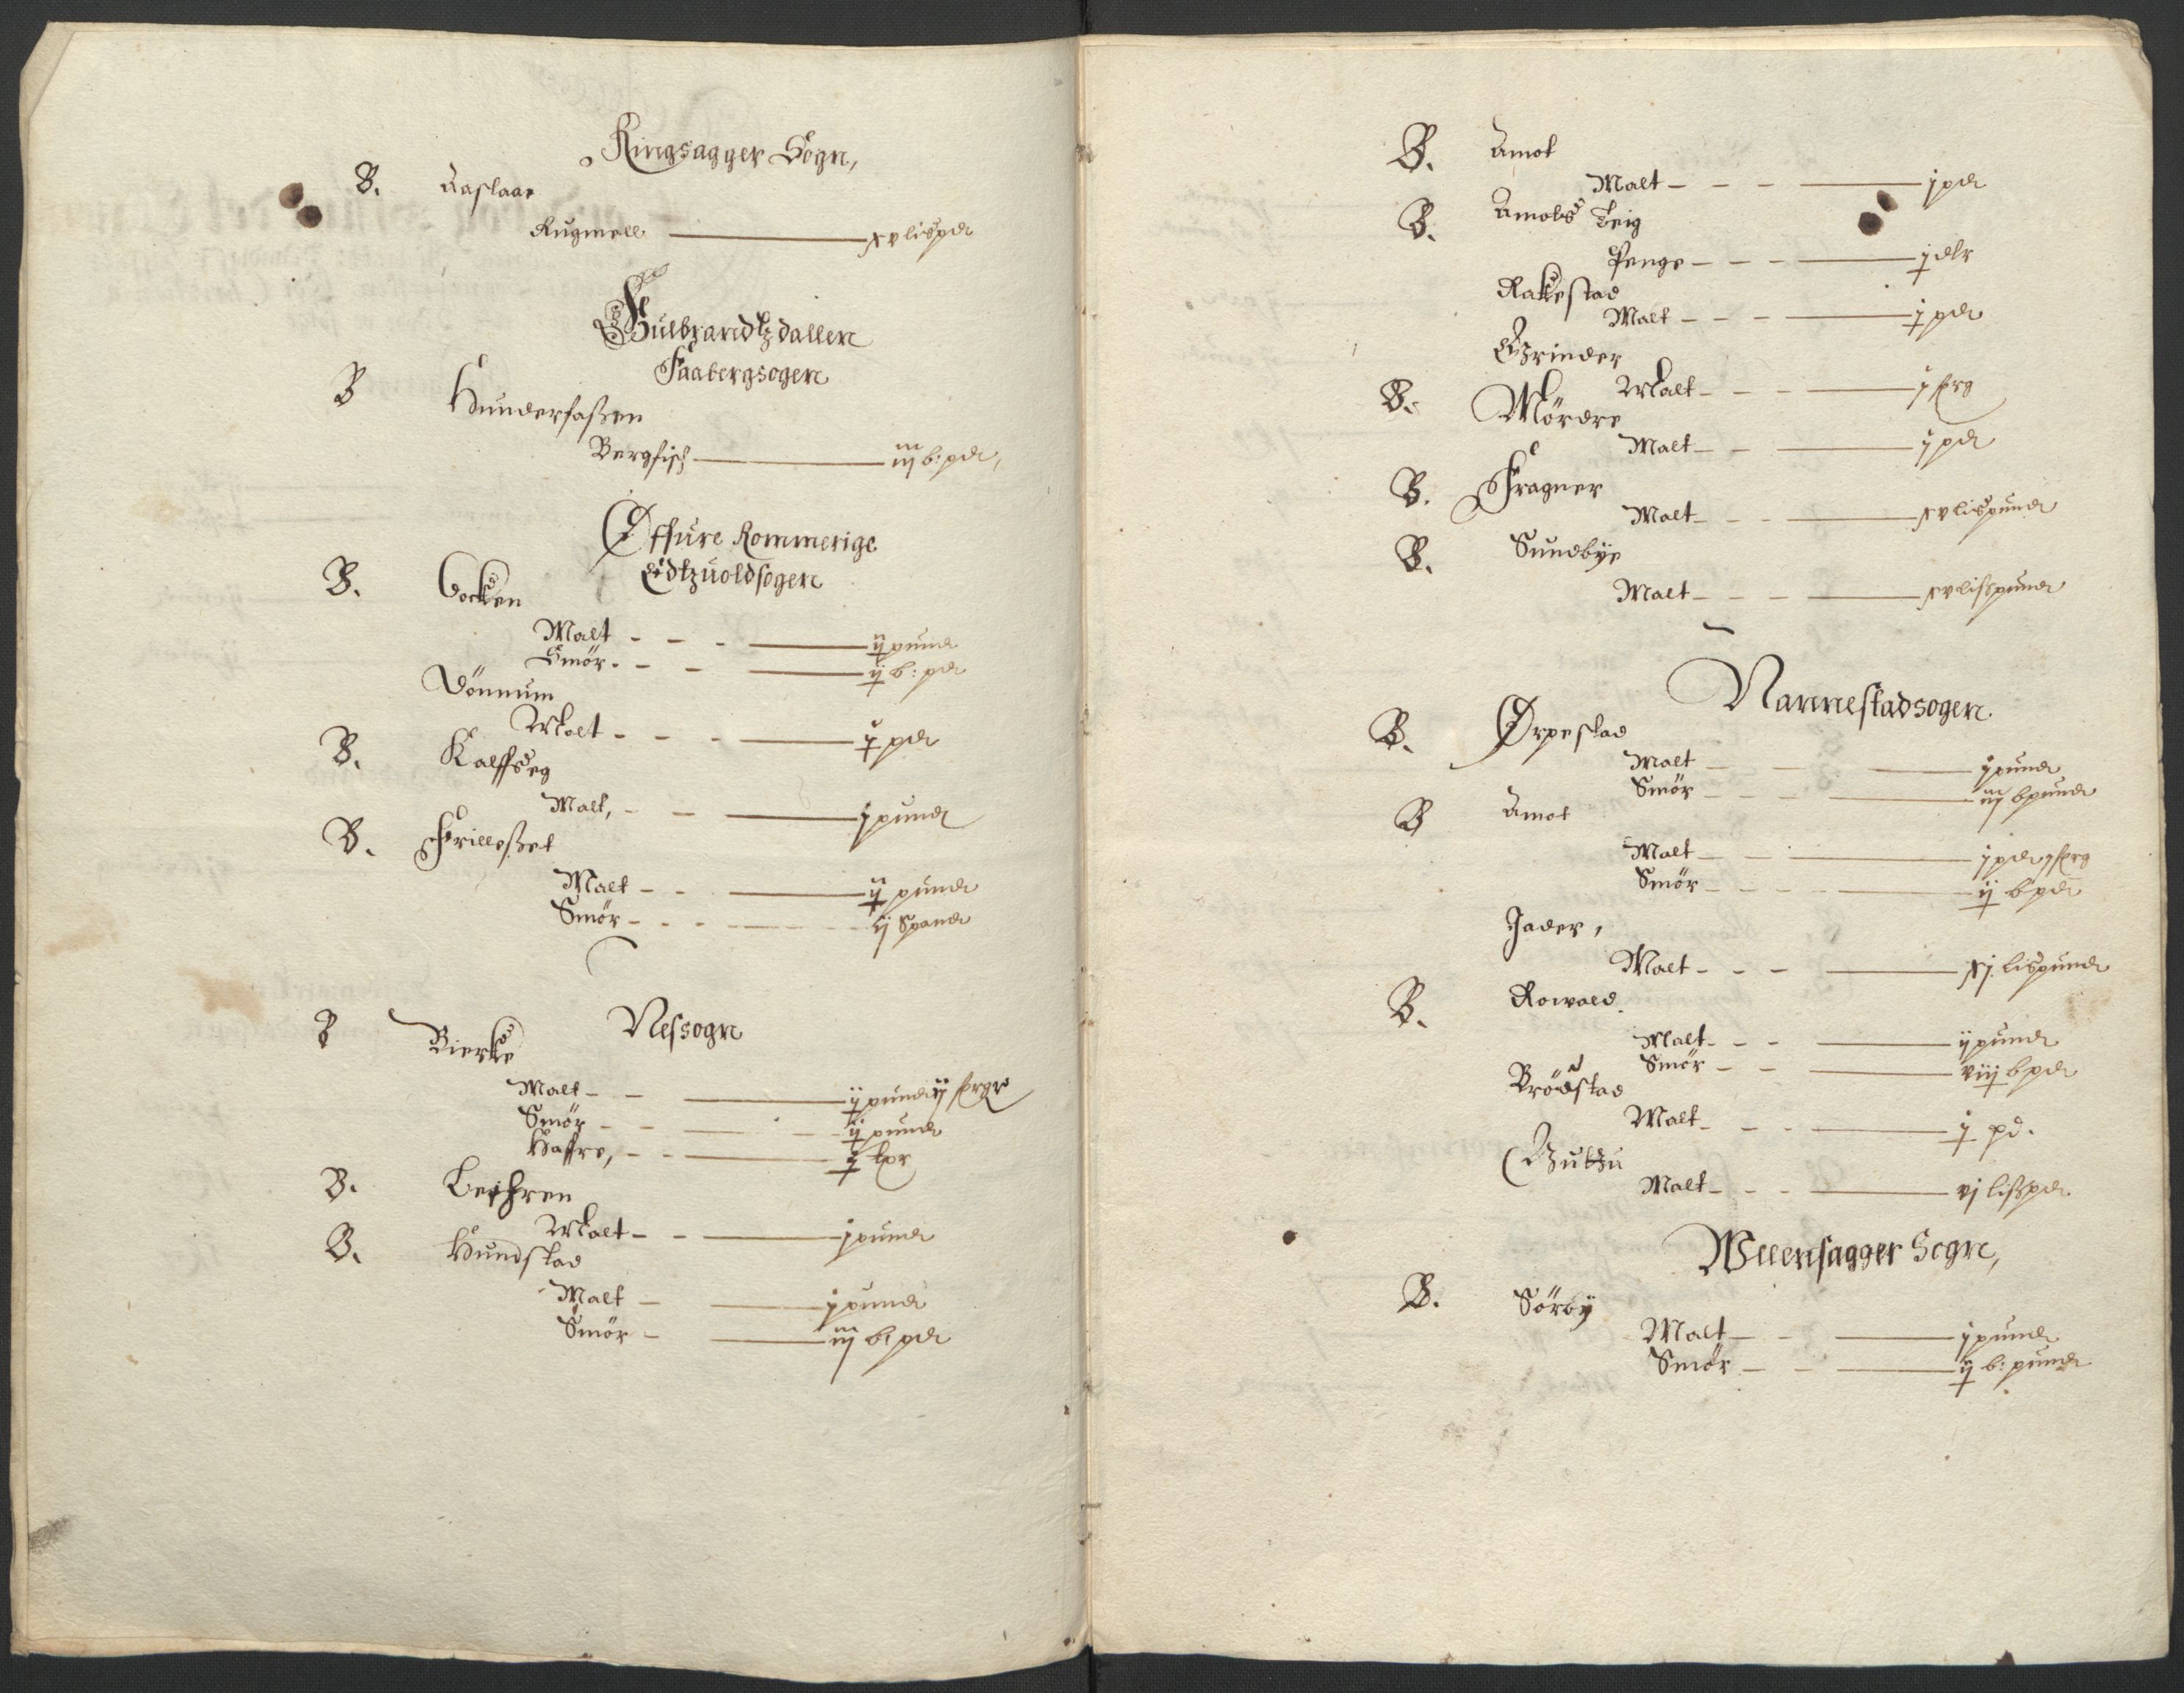 Ringsagger Sogn,
B. Aaslaar
Rugmell xv lispd
Gulbrandtzdallen
Faabergsogen
B Hunderfaßen
Bergfisch iij b: pd,
Øffüre Rommerige
Eidtzuoldsogen
B. Bocken
Malt - - - ij pund
Smör - - - ij b: pd
Dönnum
Malt - - - j pd
B. Kalffseg
Malt, - - j pund
B. Frilleßet
Malt - - ij pund
Smör - - - ij Spand
Nessogn
B Bierke
Malt - - ij pund ij serge
Smör - - ij pund
Haffre, - - j
B. Leihren
Malt - - j pund
B. Hundstad
Malt - j pund
Smör - iij b: pd
B. Amot
Malt - - - j pd
B. Amots Teig
Penge - - - j dlr
Rakestad
Malt - - - j pd
Grinder
Malt - - - j serg
B. Mördre
Malt - - j pd
B. Fragner
Malt - - - xv lispund
B. Sundbÿe
Malt - - - xv lisspund
Nannestadsogen
B. Ørpestad
Malt - - j pund
Smör - - - iij b pund
B Amot
Malt - - j pd j serg
Smör - - - ij b pd
Jader,
Malt - - - xj lispund
B. Rowald
Malt - - - ij pund
Smör - - viij b pd
Brödstad
Malt - - - j pd.
Gutzu
Malt - - - vj lisspd
Wllensagger Sogn,
B. Sörbÿ
Malt - - j pund
Smör - - ij b: pund